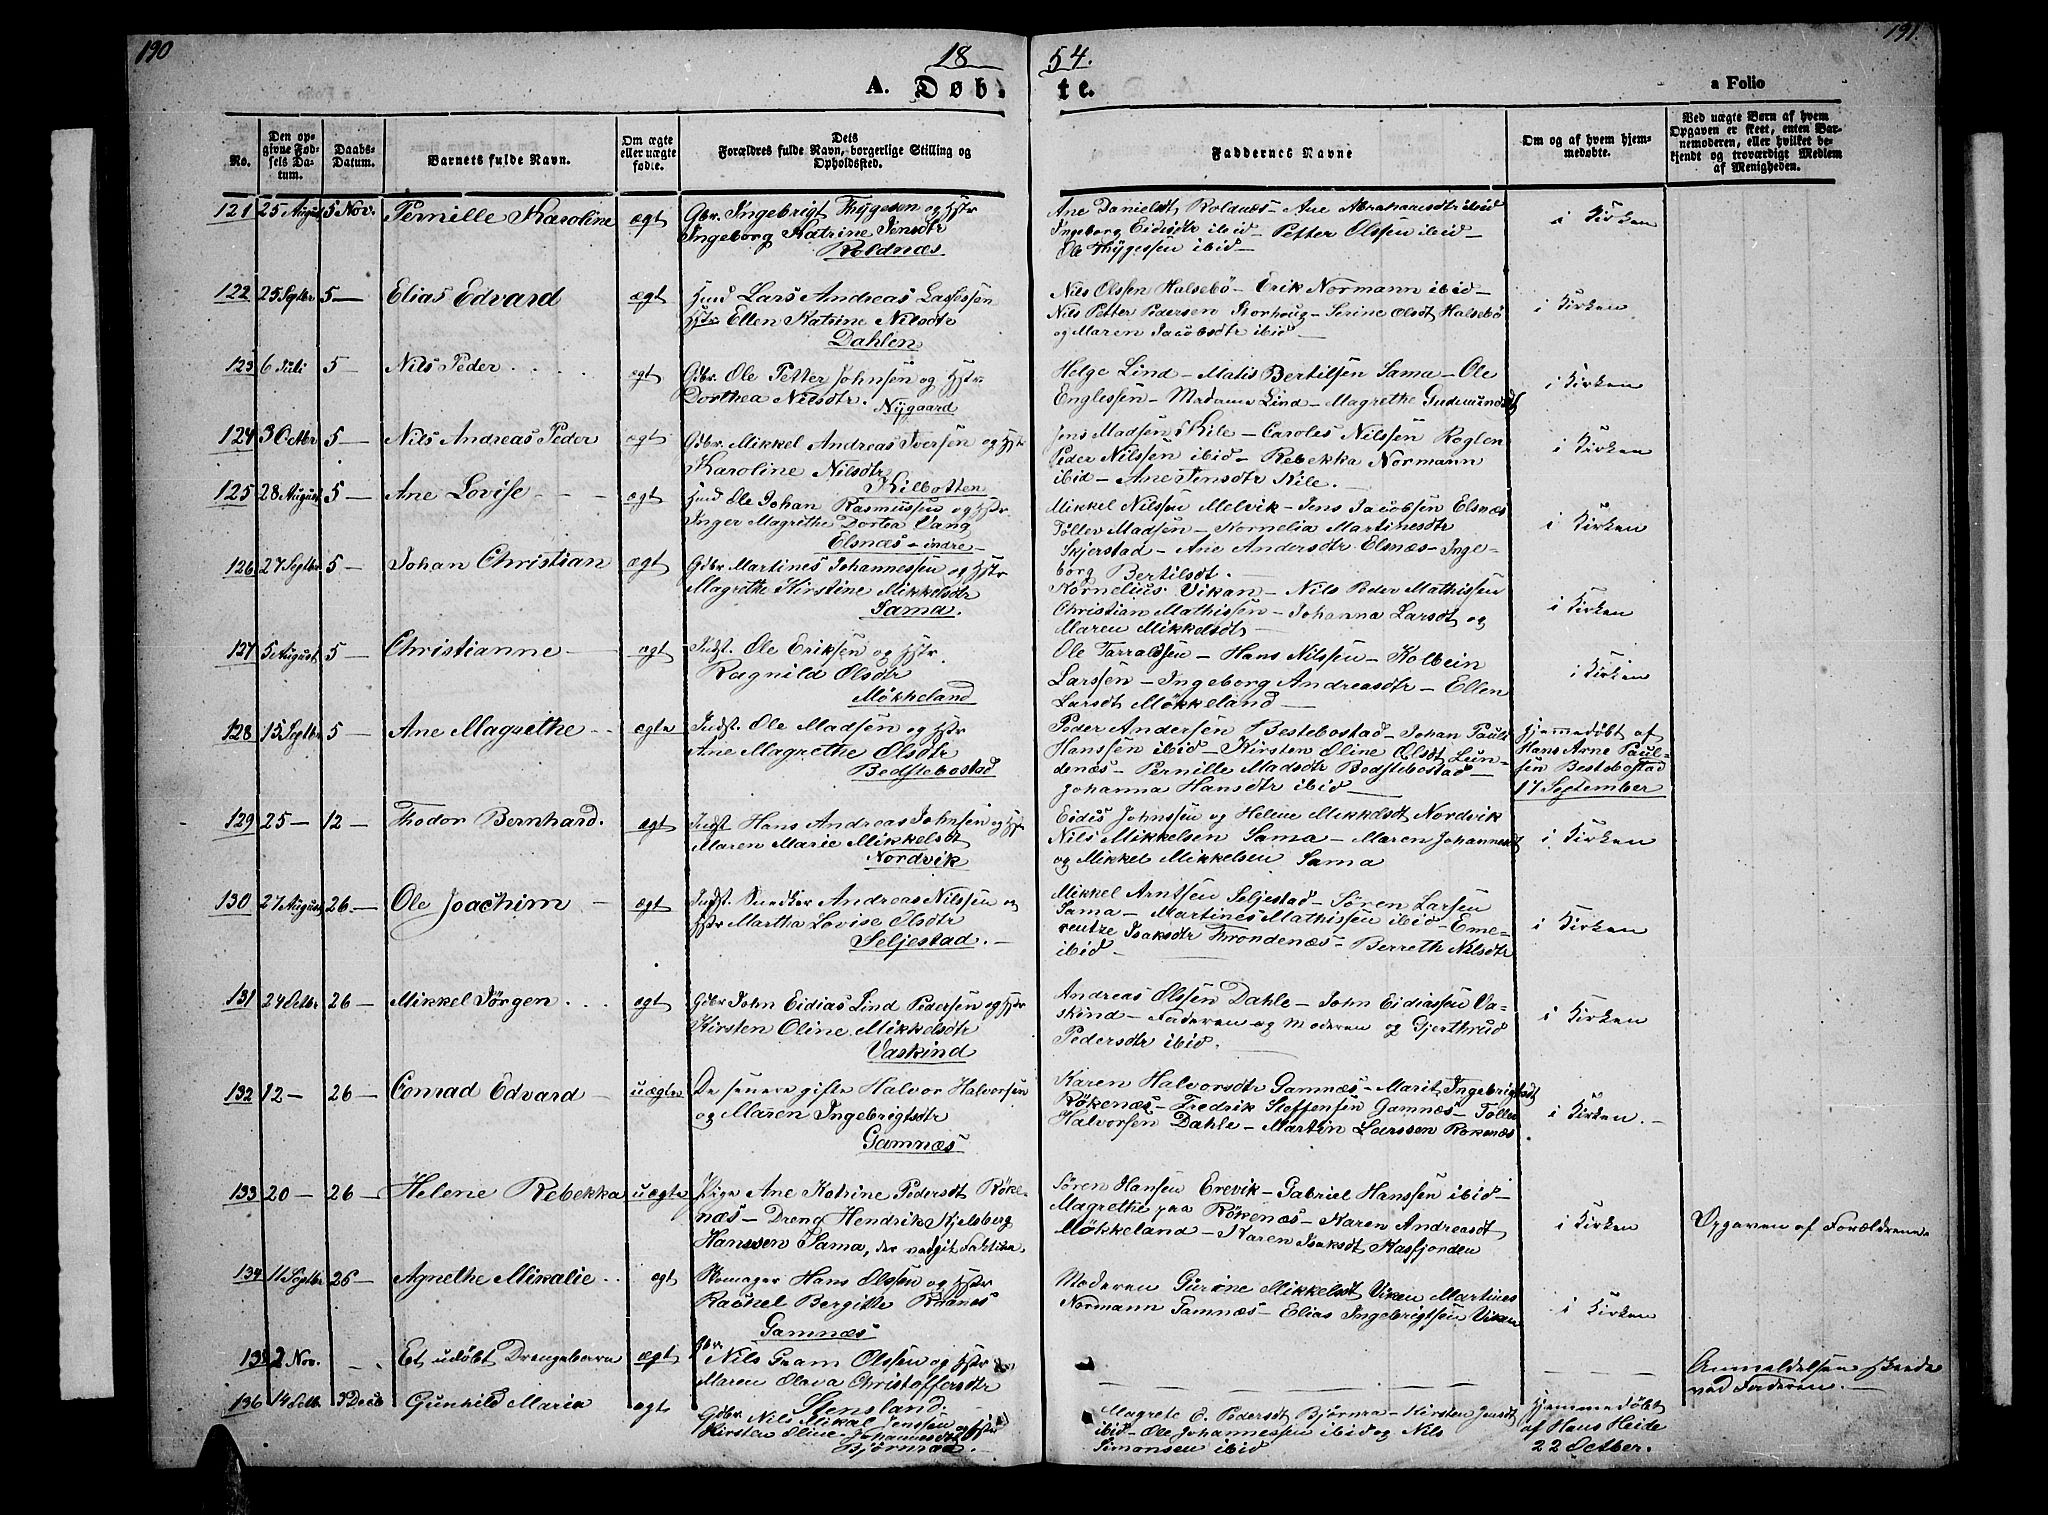 190
18 54.
191.
A. Døbte.
a Folio
No.
Den opgivne Fødsels Datum.
Daabs-Datum.
Barnets fulde Navn.
Om ægte eller uægte fødte.
Dets Forældres fulde Navn, borgerlige Stilling og Opholdssted.
Faddernes Navne
Om og af hvem hjemmedøbte.
Ved uægte Børn af hvem Opgaven er skeet, enten Barnemoderen, eller hvilket bekjendt og troværdigt Medlem af Menigheden.
121 25 August 5 Nov. Pernille Karoline ægt Gbr. Ingebrigt Thygesen og Hstr
Ingeborg Katrine Jensdtr
Roldnæs
Ane Danielsdt Roldnæs - Ane Abrahamsdtr ibid
Ingeborg Eidisdtr ibid - Petter Olssen ibid -
Ole Thygessen ibid -
i Kirken
122 25 Septbr 5 - Elias Edvard ægt Hmd Lars Andreas Lassessen
Hstr Ellen Katrine Nilsdtr
Dahlen
Nils Olssen Halsebö - Erik Normann ibid -
Nils Petter Pedersen Storhoug - Serine Olsdt Halsebö
og Maren Jacobsdtr ibid -
i Kirken
123 6 Juli 5 - Nils Peder ægt Gbr. Ole Petter Johnsen og Hstr.
Dorthea Nilsdtr. Nygaard
Helge Lind - Matis Bertilsen Sama - Ole
Englessen - Madame Lind - Magrethe Gudmundsdt
i Kirken
124 3 Octbr 5 - Nils Andreas Peder ægt Gbr. Mikkel Andreas Iversen og Hstr
Karoline Nilsdtr
Kilbotten
Jens Madsen Kile - Caroles Nilssen Roglen
Peder Nilssen ibid - Rebekka Normann
ibid - Ane Jensdtr Kile.
i Kirken
125 28 August 5 - Ane Lovise - ægt Hmd Ole Johan Rasmussen og Hstr
Inger Magrethe Dortea Vang
Elsnæs - indre -
Mikkel Nilssen Melvik - Jens Jacobsen Elsnæs
Töllev Madsen - Kornelia Martinesdtr
Skjerstad - Ane Andersdtr Elsnæs - Inge-
borg Bertilsdt. -
i Kirken
126 27 Septbr 5 - Johan Christian ægt Gbr Martines Johannessen og Hstr
Magrethe Kirstine Mikkelsdtr
Sama.
Kornelius Vikan - Nils Peder Mathissen
Christian Mathissen - Johanna Larsdt og
Maren Mikkelsdt -
i Kirken
127 5 August 5 - Christianne - ægt Indst. Ole Eriksen og Hstr.
Ragnild Olsdtr
Møkkeland
Ole Tarraldsen - Hans Nilssen - Kolbein
Larssen - Ingeborg Andreasdtr - Ellen
Larsdt Møkkeland -
i Kirken
128 15 Septbr 5 - Ane Magrethe - ægte Indst. Ole Madsen og Hstr
Ane Magrethe Olsdtr
Bedstebostad
Peder Andersen Bestebostad - Johan Paul
Hanssen ibid - Kirsten Oline Olsdt Lun-
denæs - Pernille Madsdtr Bedstebostad -
Johanna Hansdtr ibid -
Hjemmedøbt af
Hans Arne Paul-
sen Bestebostad
17 September
129 25 - 12 - Thodor Bernhard. ægt Indst. Hans Andreas Johnsen og Hstr
Maren Marie Mikkelsdt
Nordvik
Eidis Johnssen og Helene Mikkelsdt Nordvik
Nils Mikkelsen Sama - Maren Johannesdt
og Mikkel Mikkelsen Sama
i Kirken
130 27 August 26 - Ole Joachim - ægt Indst. Snedker Andreas Nilssen og
Hstr Martha Lovise Olsdtr
Seljestad. -
Mikkel Arntsen Seljestad - Sören Larsen
Sama - Martines Mathissen ibid - Eme-
rentze Isaksdtr Throndenæs - Berreth Nilsdtr
ibid -
i Kirken
131 24 Octbr 26 - Mikkel Jörgen ægt Gbr John Eidias Lind Pedersen og Hstr
Kirsten Oline Mikkelsdtr
Vaskind
Andreas Olssen Dahle - John Eidiassen Va-
skind - Faderen og Moderen og Gjerthrud
Pedersdtr ibid.
i Kirken
132 12 - 26 - Conrad Edvard - uægte De senere gifte Halvor Halvorsen
og Maren Ingebrigtsdtr
Gamnæs
Karen Halvorsdtr Gamnæs - Marit Ingebrigtsdt
Rökenæs - Fredrik Steffensen Gamnæs - Tollev
Halvorsen Dahle - Martin Larssen Rökenæs
i Kirken. -
133 20 - 26 - Helene Rebekka uægte Pige Ane Katrine Pedersdt Röke-
næs - Dreng Hendrik Kjelsberg
Hanssen Sama,
Sören Hansen Erevik - Gabriel Hanssen ibid -
Magrethe paa Rökenæs - Karen Andreasdt
Møkkeland - Karen Isaksdt Kasfjorden
i Kirken
Opgaven af Forældrene.
134 11 Septbr 26 - Agnethe Mikalie ægt Skomager Hans Olssen og Hstr
Rackel Bergitte
Gamnæs
Moderen Gurine Mikkelsdt Viken Martines
Normann Gamnæs - Elias Ingebrigtsen Viken
i Kirken
135 2 Nov. - Et udöbt Drengebarn ægt Gbr.
Nils Gram Olssen og Hstr
Maren Olava Christoffersdtr
Stensland.
Anmeldelsen skeede
ved Faderen. -
136 14 Octb. 3 Decb Gunhild Marie ægt Gbr. Nils Mikal Jenssen og Hstr
Kirsten Oline Johannesdtr
Björnraa. -
Magrete E. Pedersdt Björnra - Kirsten Jensdt
ibid - Ole Johannessen ibid og Nils
Simonsen ibid
Hjemmedöbt
af Hans Heide
22 October.